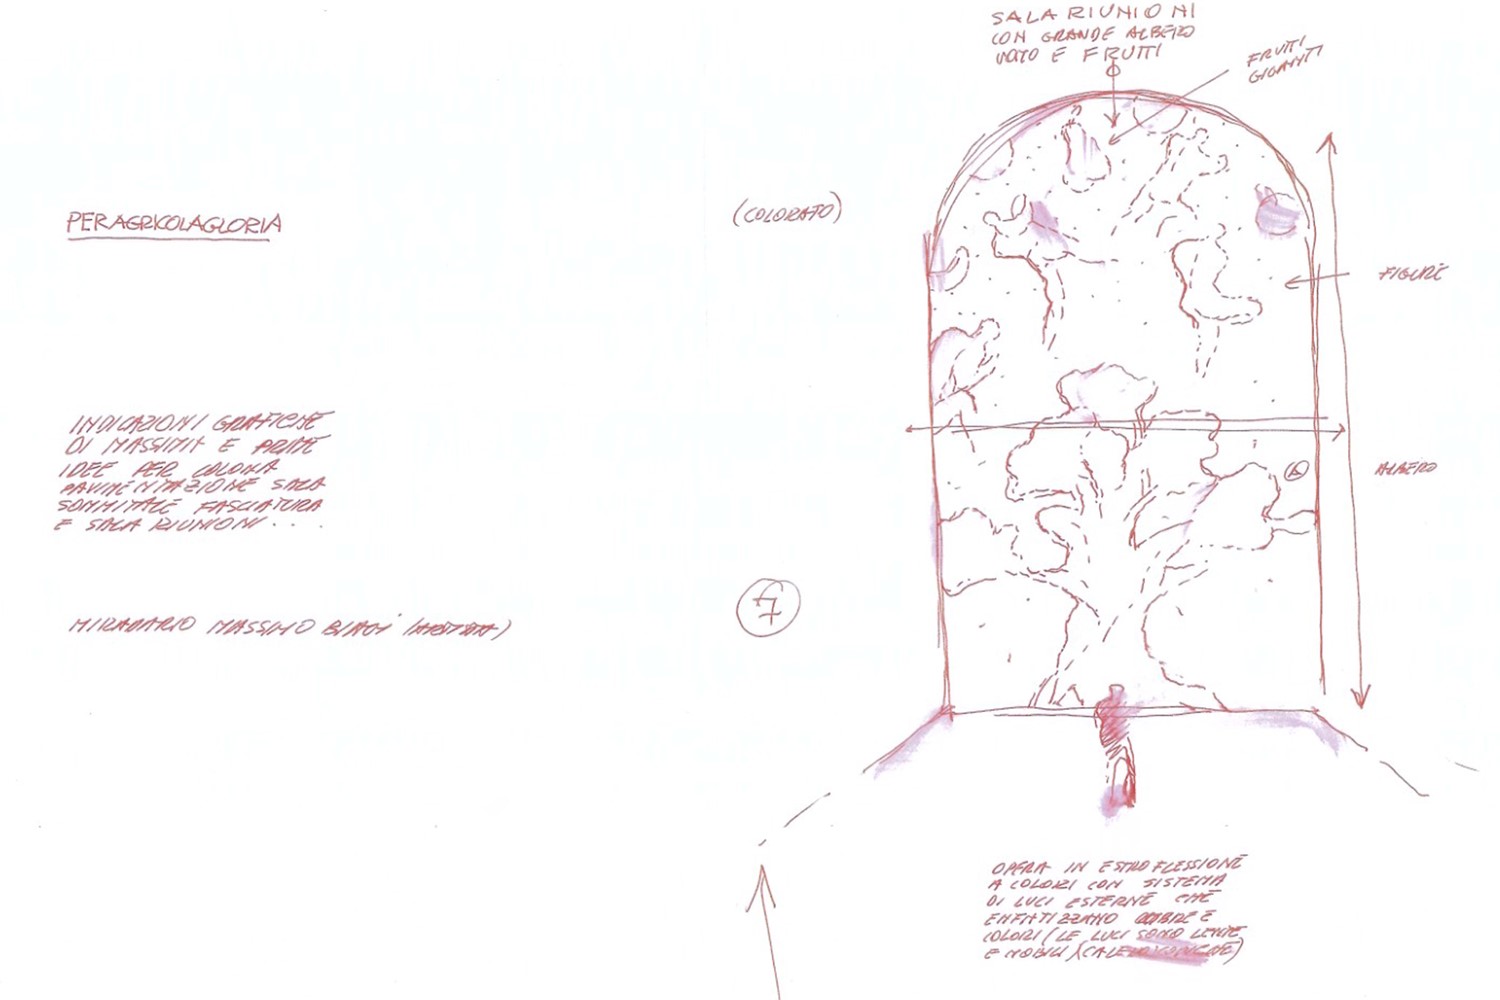 SALA RIUNIONI
CON GRANDE ALBERO
VUOTO E FRUTTI
FRUTTI
GIGANTI
PERAGRICOLAGLORIA
(COLORATO)
FIGURE
INDICAZIONI GRAFICHE
DI MASSIMA E PRIME
IDEE PER COLONNA
PAVIMENTAZIONE SALA
SOMMITALE FASCIATURA
E SALA RIUNIONI....
ALBERO
MIRADARIO MASSIMO BIAGI
7
OPERA IN ESTROFLESSIONE
A COLORI CON SISTEMA
DI LUCI ESTERNE CHE
ENFATIZZANO OMBRE E
COLORI (LE LUCI SONO LENTE
E MOBILI)